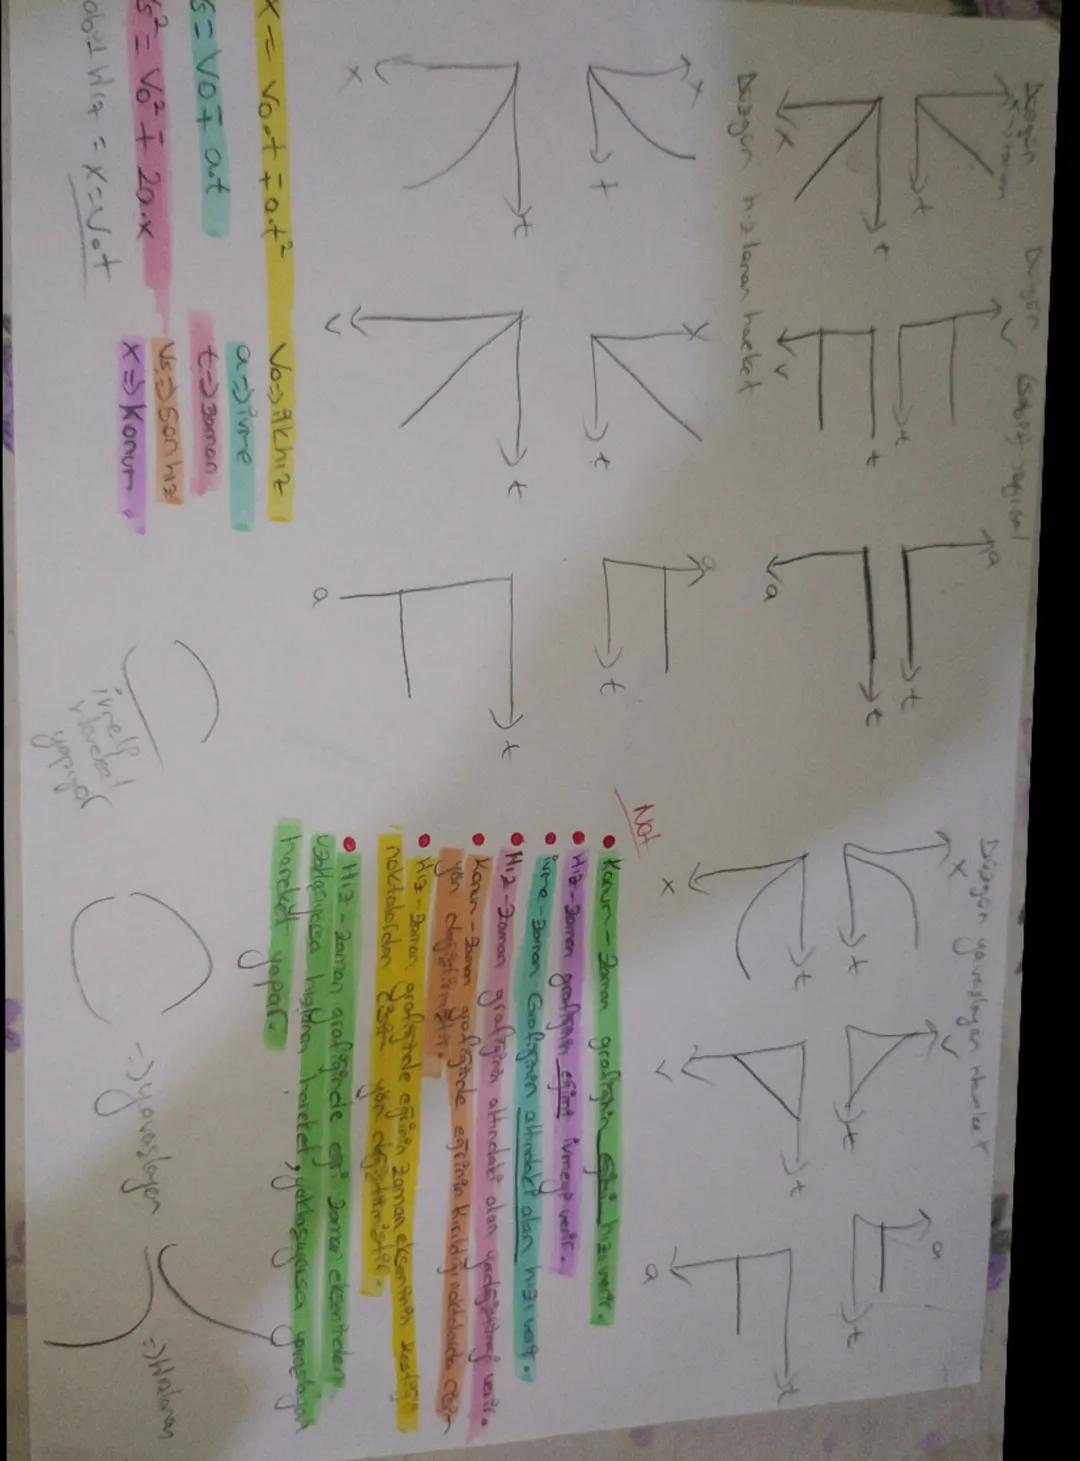 Düzgün Doğrusal
Düzgün (sabit) doğrusal
x
t
v
t
a
t
t
x
t
v
t
a
Düzgün hızlanan hareket
x
t
x
t
a
t
t
x
t
v
t
a
x = V₀.t ∓ a.t²
Vs = V₀ ∓ a.t
Vs² = V₀² ∓ 2a.x
sabit Hız = x = V.t
V₀ => ilk hız
a => ivme
t => zaman
Vs => Son hız
x => Konum.
Düzgün yavaşlayan Hareket
x
t
v
t
a
t
t
x
t
v
t
a
Not
• Konum-Zaman grafiğinin eğimi hızı verir.
• Hız-Zaman grafiğinin eğimi ivmeyi verir.
• ivme-zaman Grafiğinin altındaki alan hızı verir.
• Hız-Zaman grafiğinin altındaki alan verir.
• Konum-Zaman grafiğinde eğrinin kırıldığı noktalarda cisim
yön değiştirmiştir.
• Hız-Zaman grafiğinde eğrinin zaman eksenini kestiği
noktalardan cisim yön değiştirmiştir.
• Hız-zaman grafiğinde eğri zaman ekseninden
uzaklaşıyorsa hızlanan hareket, yaklaşıyorsa yavaşlayan
hareket yapar.
ivmeli
Hareket
yapıyor
=> yavaşlayan
=> Hızlanan